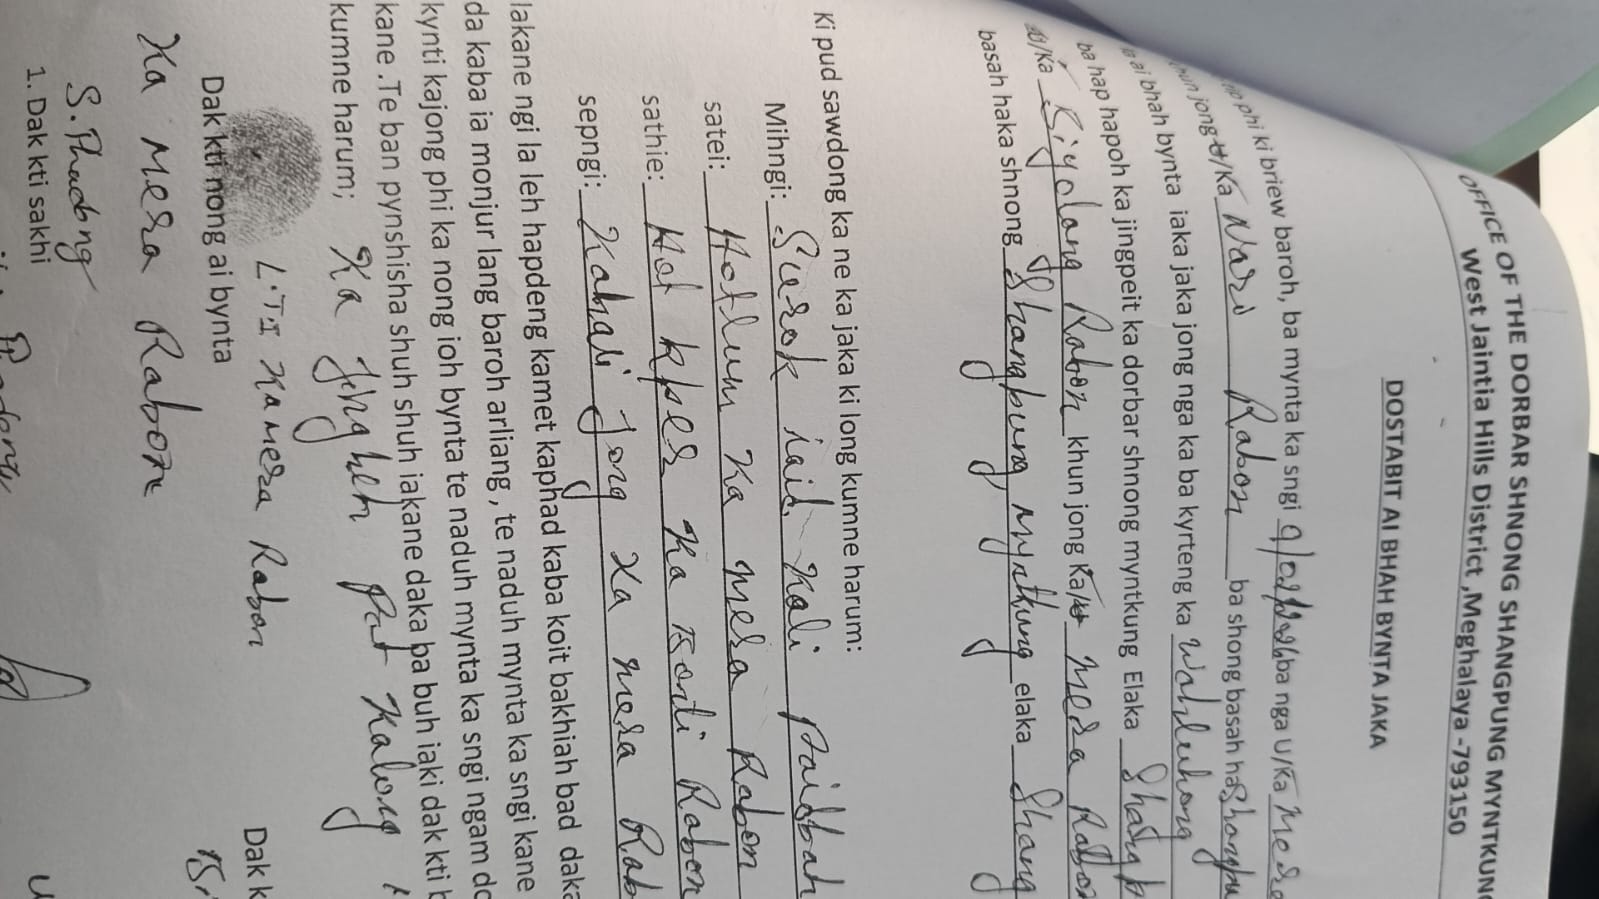 OFFICE OF THE DORBAR SHNONG SHANGPUNG MYNTKUNG
West Jaintia Hills District ,Meghalaya -793150
DOSTABIT AI BHAH BYNTA JAKA
phi ki briew baroh, ba mynta ka sngi ba nga U/Ka Mera
khun jong U/Ka Nari Rabon ba shong basah ha Shangpu
ai bhah bynta iaka jaka jong nga ka ba kyrteng ka Wahluhong
ba hap hapoh ka jingpeit ka dorbar shnong myntkung Elaka Shangp
U/Ka Riyolang Rabon khun jong Ka/U Mera Rabon
basah haka shnong Shangpung Myntkung elaka Shang
Ki pud sawdong ka ne ka jaka ki long kumne harum:
Mihngi: Surok iaid Kali paidbah
satei: Hotlum Ka Mera Rabon
sathie: Hot Kper Ka Rabon
sepngi: Kabali Jong Ka Mera Rab
lakane ngi la leh hapdeng kamet kaphad kaba koit bakhiah bad daka
da kaba ia monjur lang baroh arliang , te naduh mynta ka sngi kane
kynti kajong phi ka nong ioh bynta te naduh mynta ka sngi ngam do
kane .Te ban pynshisha shuh shuh iakane daka ba buh iaki dak kti b
kumne harum; Ka Jingheh Pat Kalong
L.T.I Ka Mera Rabon
Dak kti nong ai bynta
Dak k
Ka Mera Rabon
S. Phadong
1. Dak kti sakhi